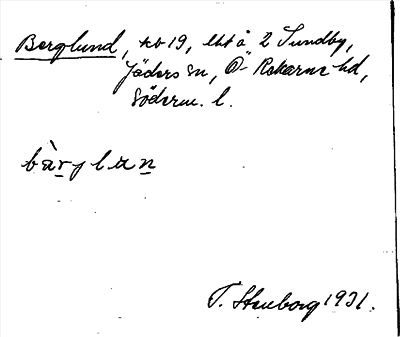 Berglund, kb 19, lht å 2 Sundby,
Jäders sn, Ö-Rekarne hd,
Söderm. l.
bàrjlan
T. Stenborg 1931.